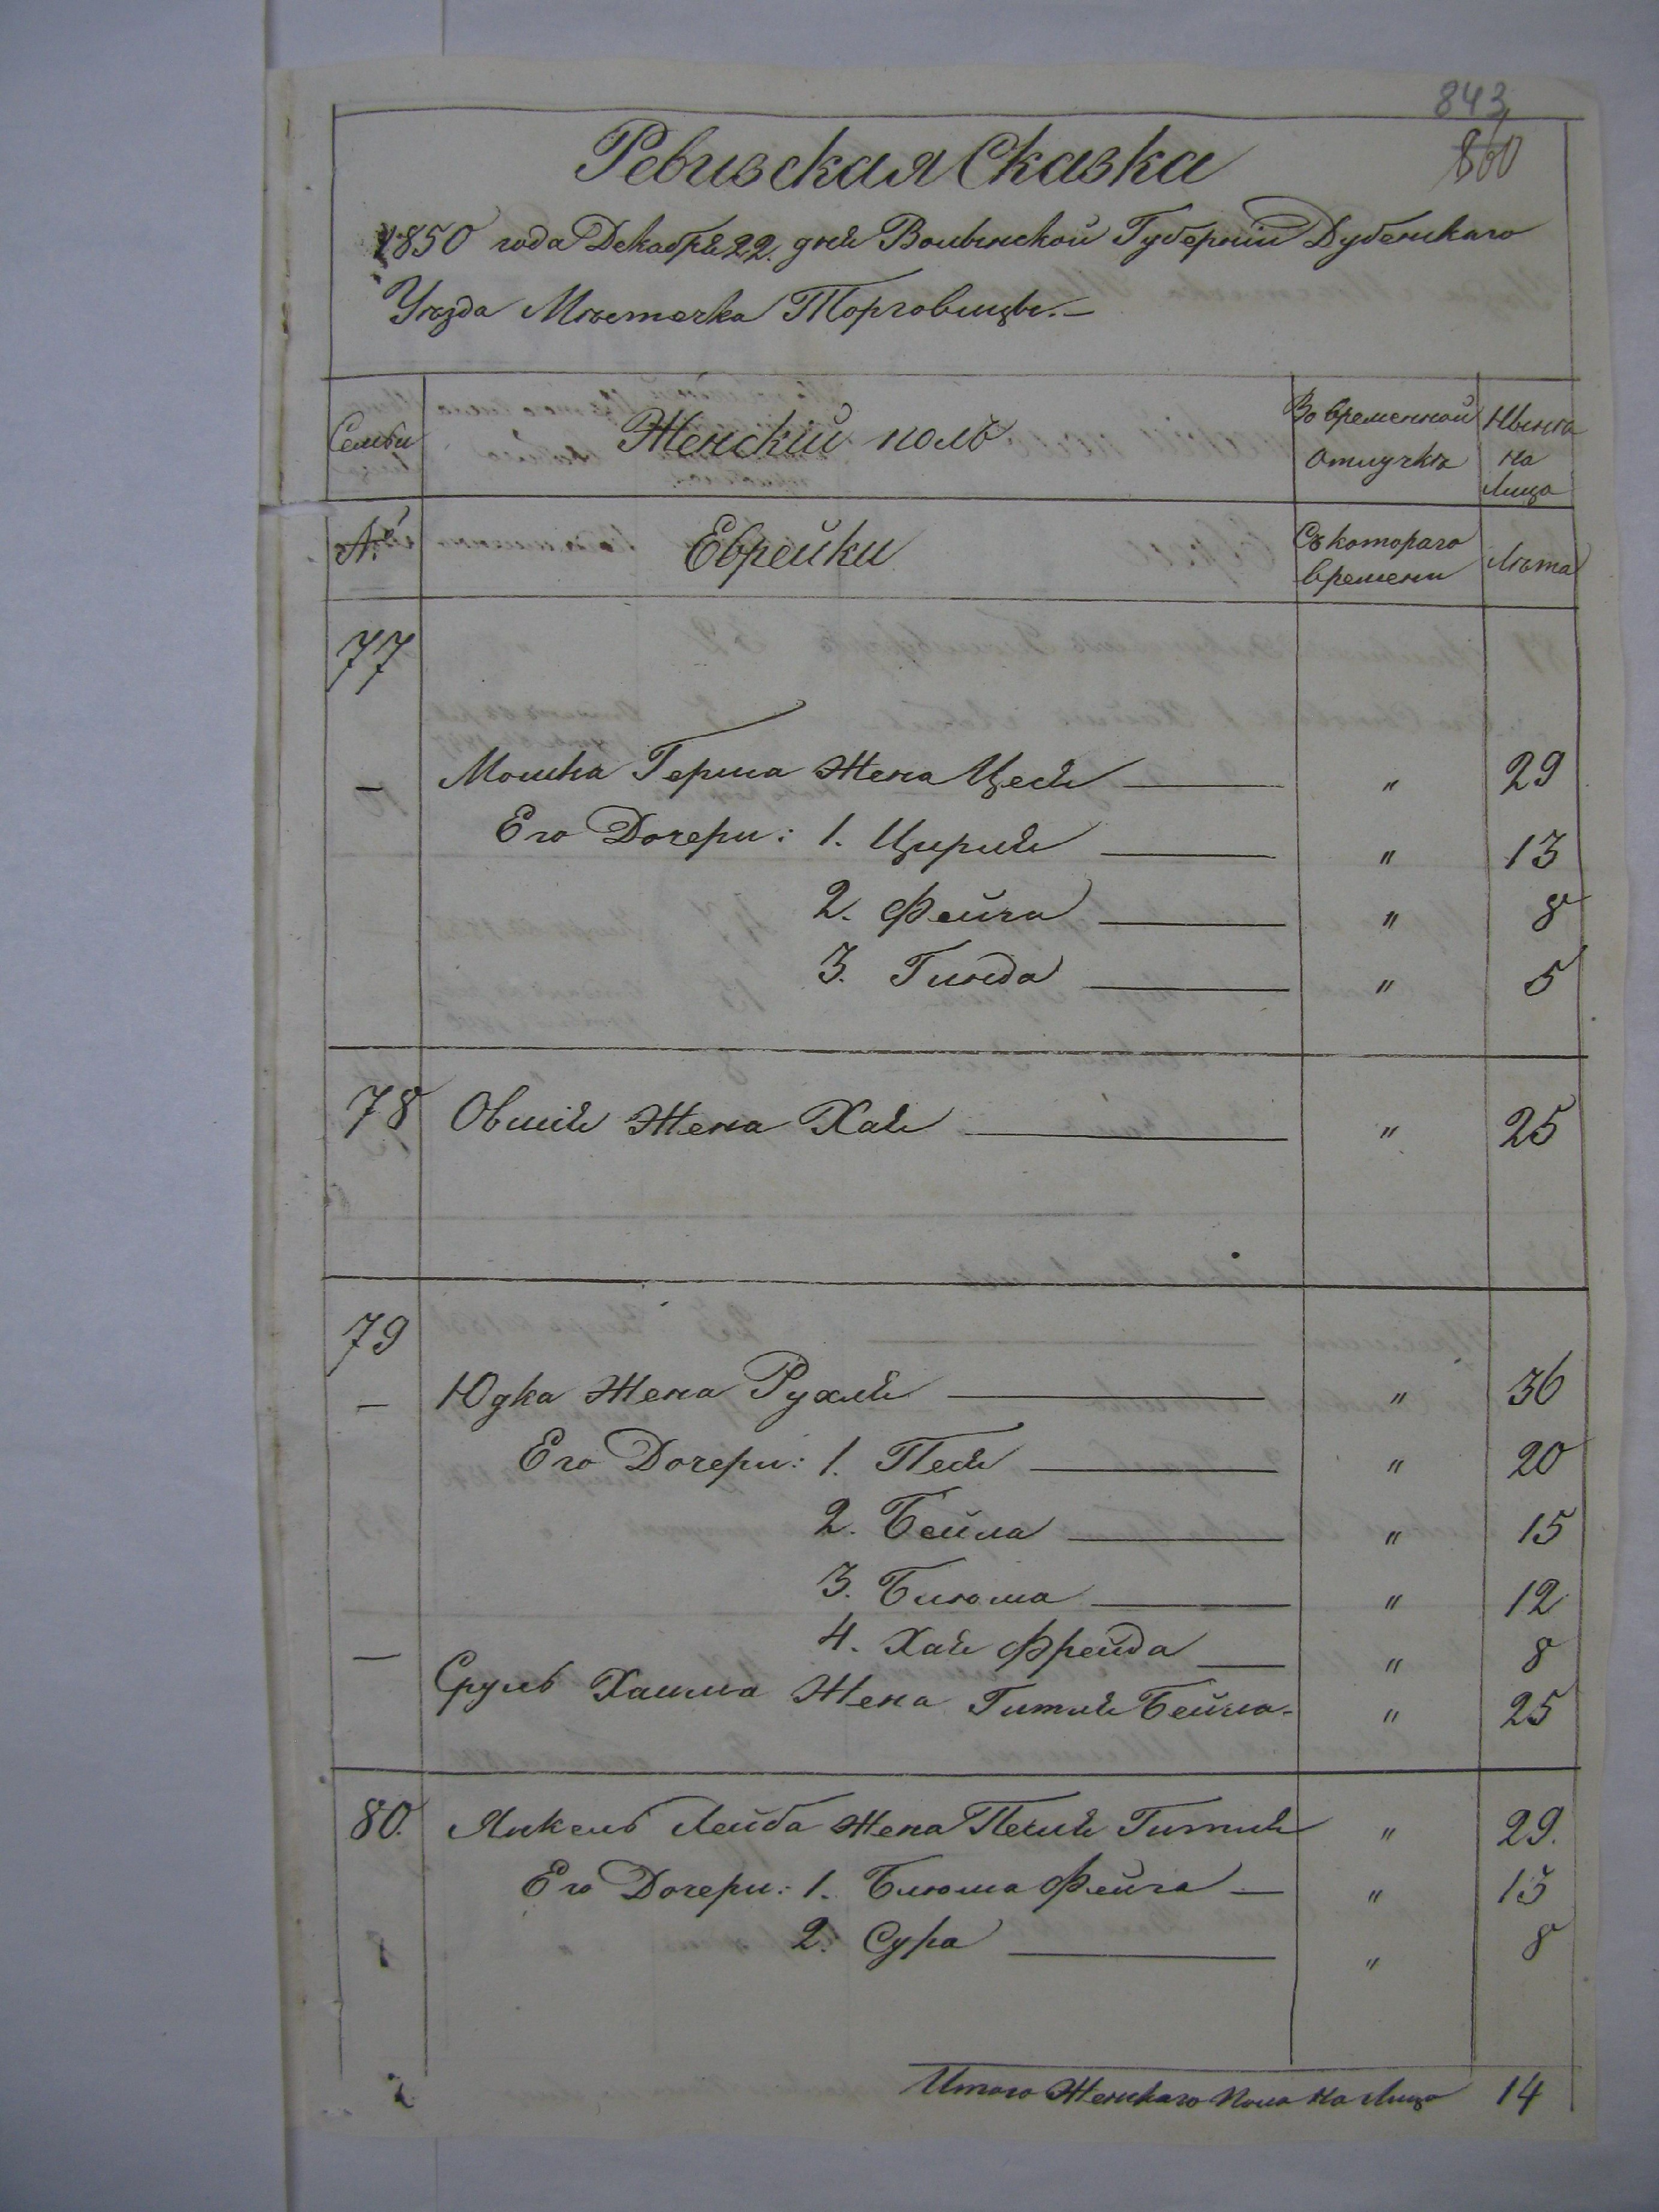 843
860
Ревизская Сказка
1850 года Декабря 22. дня Волынской Губерніи Дубенскаго
Уѣзда Мѣстечка Торговицы.—
Семьи
Женскій полъ
Во временной
отлучкѣ
Нынѣ
на
лицо
№
Еврейки
Съ котораго
времени
Лѣта
77
— Мошка Герша Жена Цеся — " 29
Его Дочери: 1. Цирля — " 13
2. Фейга — " 8
3. Гинда — " 5
78 Овшія Жена Хая — " 25
79
— Юдка Жена Рухля — " 36
Его Дочери: 1. Песя — " 20
2. Бейла — " 15
3. Блюма — " 12
4. Хая Фрейда — " 8
— Сруль Хаима Жена Гитля Бейла - " 25
80. Янкель Лейба Жена Песля Гитля " 29.
Его Дочери: 1. Блюма Фейга — " 13
2. Сура — " 8
Итого Женскаго Пола на Лицо 14